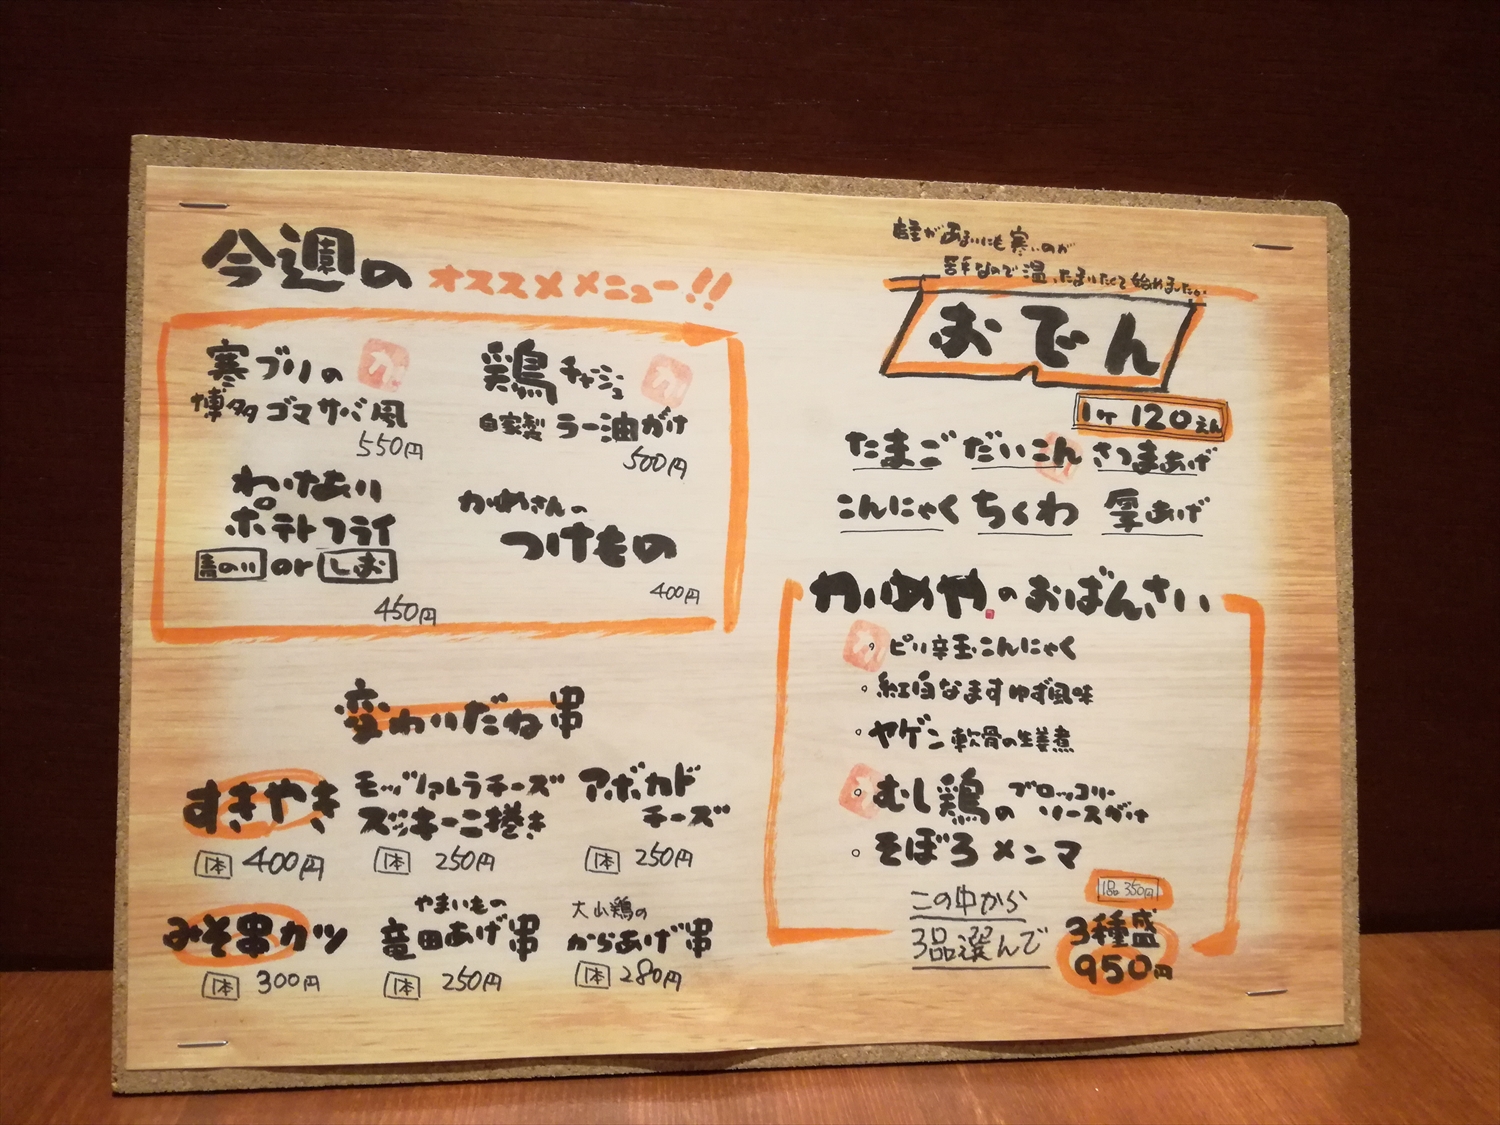 今週の オススメメニュー!!
寒ブリの
博多ゴマサバ風
550円
鶏チャーシュー
自家製ラー油がけ
500円
わけあり
ポテトフライ
青のり or しお
450円
かめさんの
つけもの
400円
変わりだね串
すきやき
1本 400円
モッツァレラチーズ
ズッキーニ巻き
1本 250円
アボカド
チーズ
1本 250円
みそ串カツ
1本 300円
やまいもの
竜田あげ串
1本 250円
大山鶏の
からあげ串
1本 280円
店主があまりにも寒いのが
苦手なので温ったまりたくて始めました。
おでん
1ケ 120えん
たまご だいこん さつまあげ
こんにゃく ちくわ 厚あげ
かめや.のおばんさい
。ピリ辛玉こんにゃく
。紅白なますゆず風味
。ヤゲン軟骨の生姜煮
。むし鶏のブロッコリーソースがけ
。そぼろメンマ
1品 350円
この中から
3品選んで
3種盛
950円